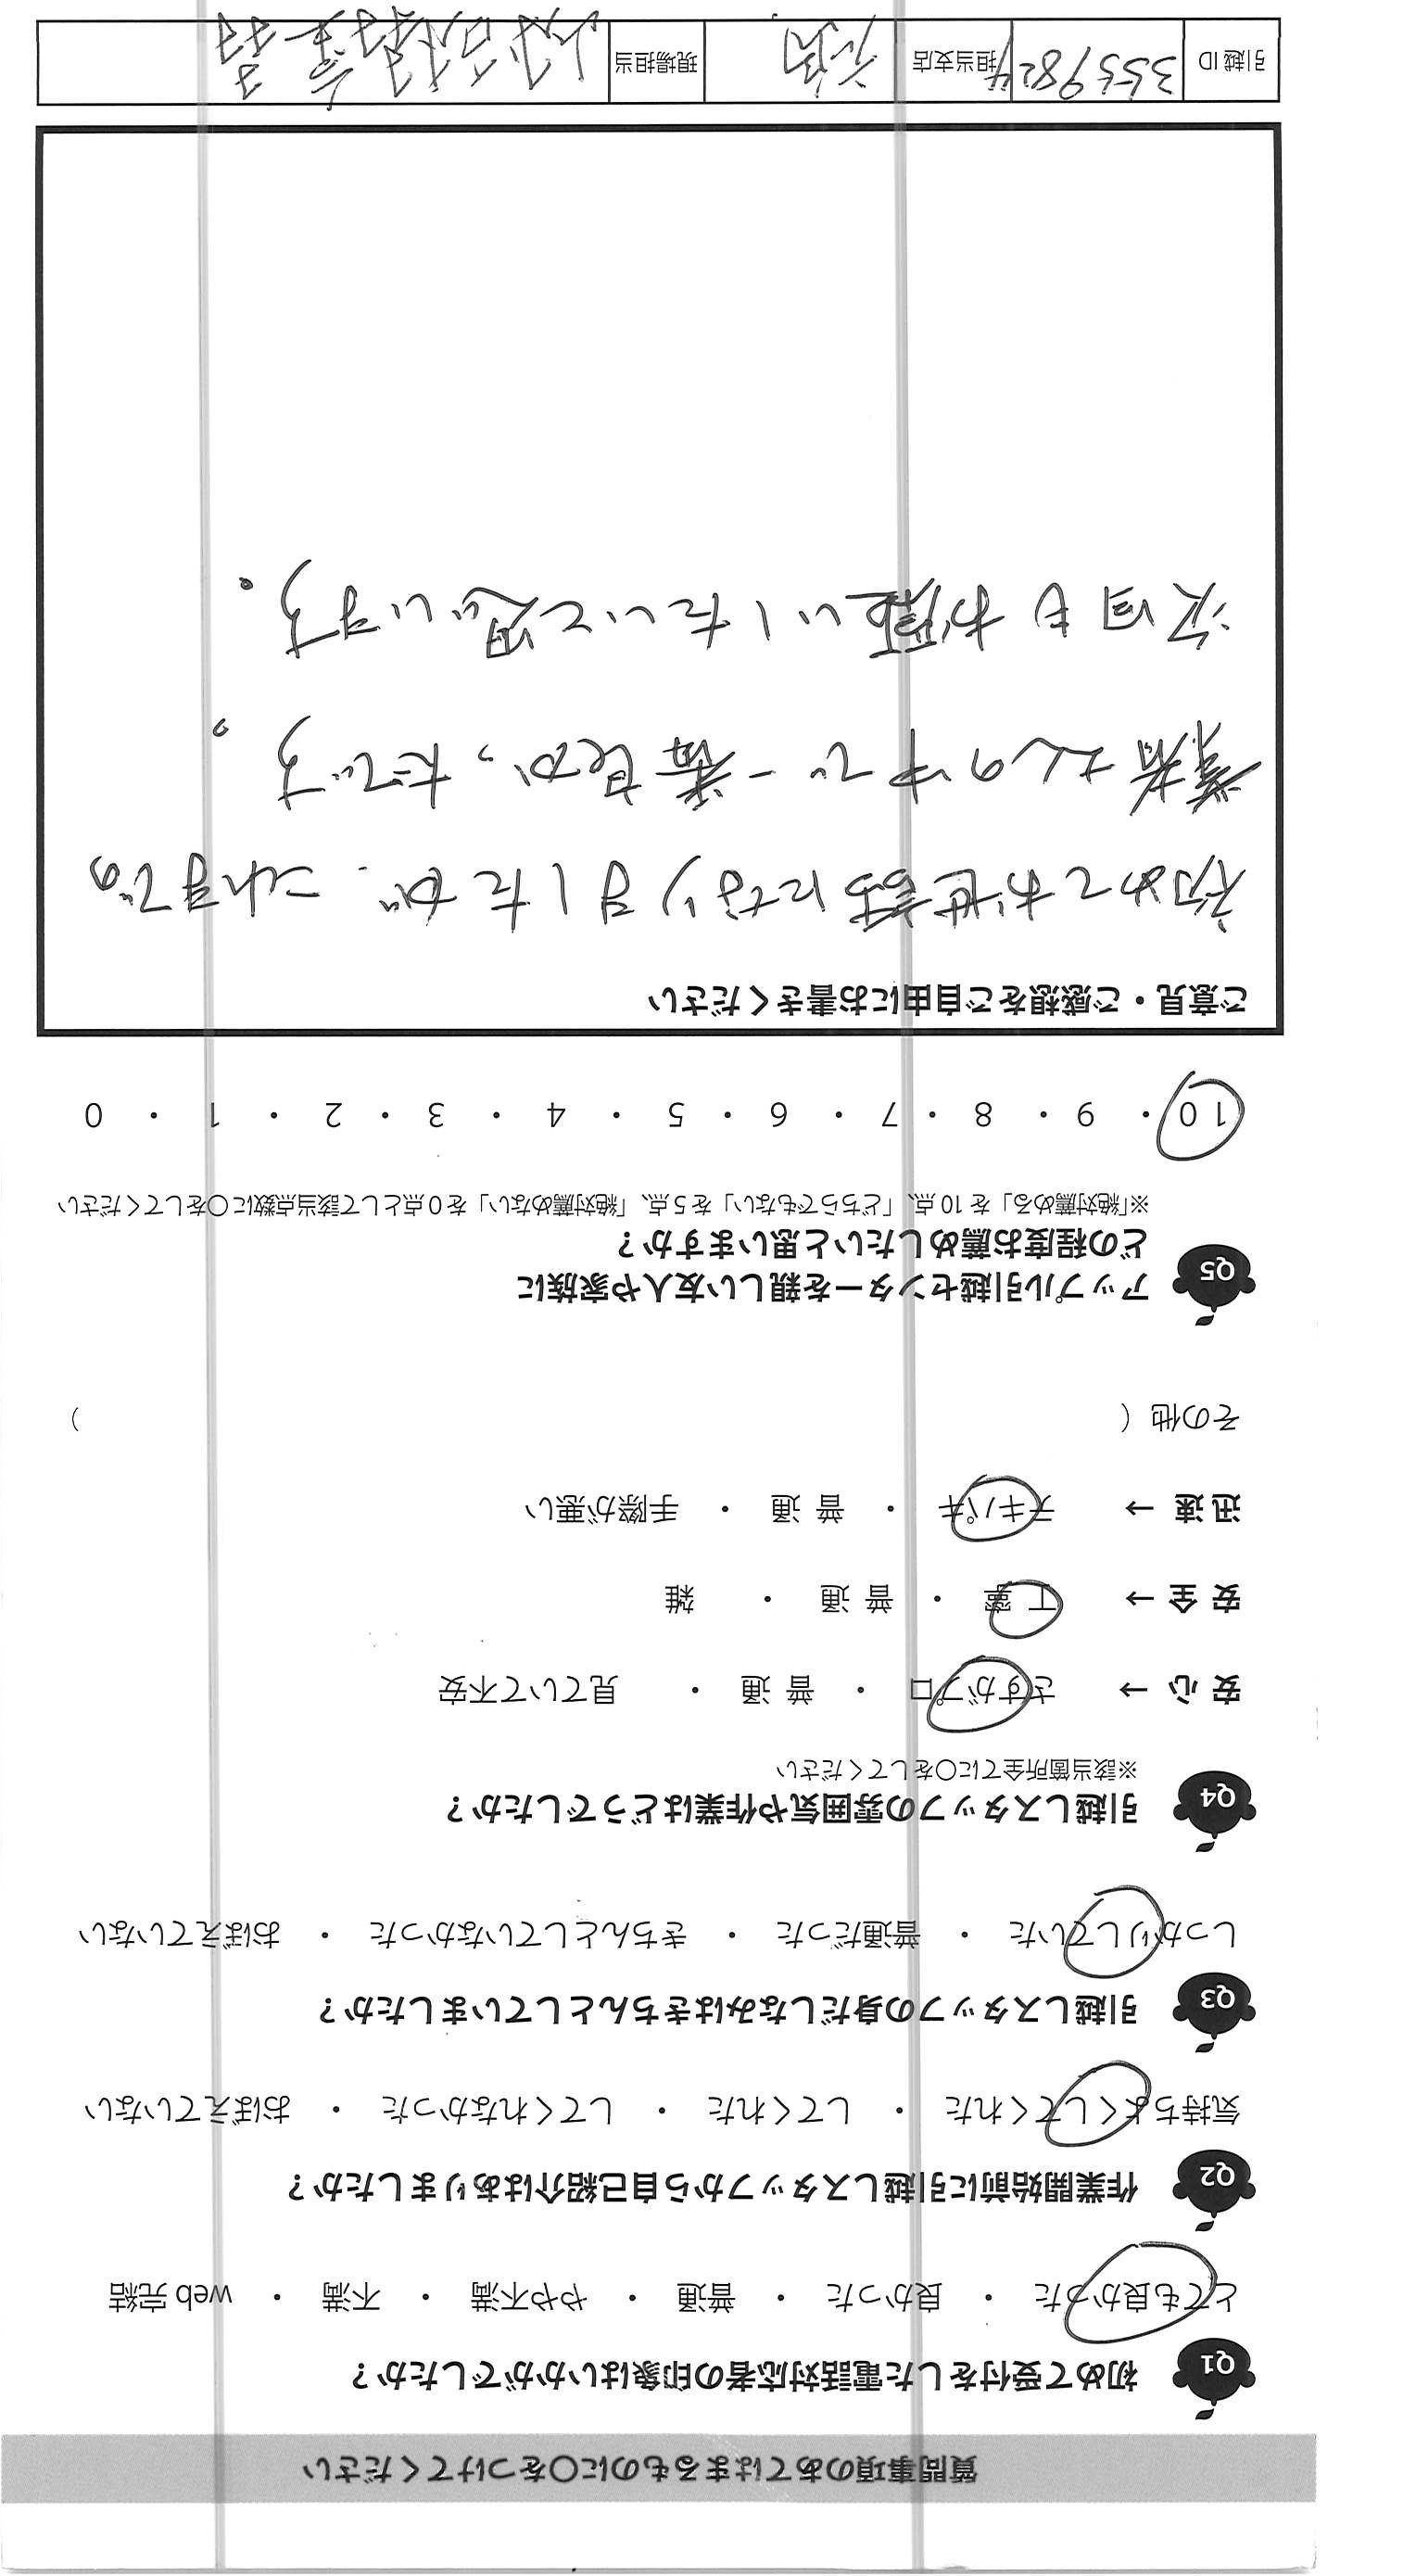 質問事項のあてはまるものに○をつけてください
Q1 初めて受付をした電話対応者の印象はいかがでしたか？
とても良かった ・ 良かった ・ 普通 ・ やや不満 ・ 不満 ・ web 完結
Q2 作業開始前に引越しスタッフから自己紹介はありましたか？
気持ちよくしてくれた ・ してくれた ・ してくれなかった ・ おぼえていない
Q3 引越しスタッフの身だしなみはきちんとしていましたか？
しっかりしていた ・ 普通だった ・ きちんとしていなかった ・ おぼえていない
Q4 引越しスタッフの雰囲気や作業はどうでしたか？
※該当箇所全てに○をしてください
安 心 → さすがプロ ・ 普 通 ・ 見ていて不安
安 全 → 丁 寧 ・ 普 通 ・ 雑
迅 速 → テキパキ ・ 普 通 ・ 手際が悪い
その他（ ）
Q5 アップル引越センターを親しい友人や家族に
どの程度お薦めしたいと思いますか？
※「絶対薦める」を 10 点、「どちらでもない」を 5 点、「絶対薦めない」を 0 点として該当点数に○をしてください
10 ・ 9 ・ 8 ・ 7 ・ 6 ・ 5 ・ 4 ・ 3 ・ 2 ・ 1 ・ 0
ご意見・ご感想をご自由にお書きください
初めてお世話になりましたが、これまでの
業者さんの中で一番良かったです。
次回もお願いしたいと思います。
引越 ID 3559824 担当支店 現場担当